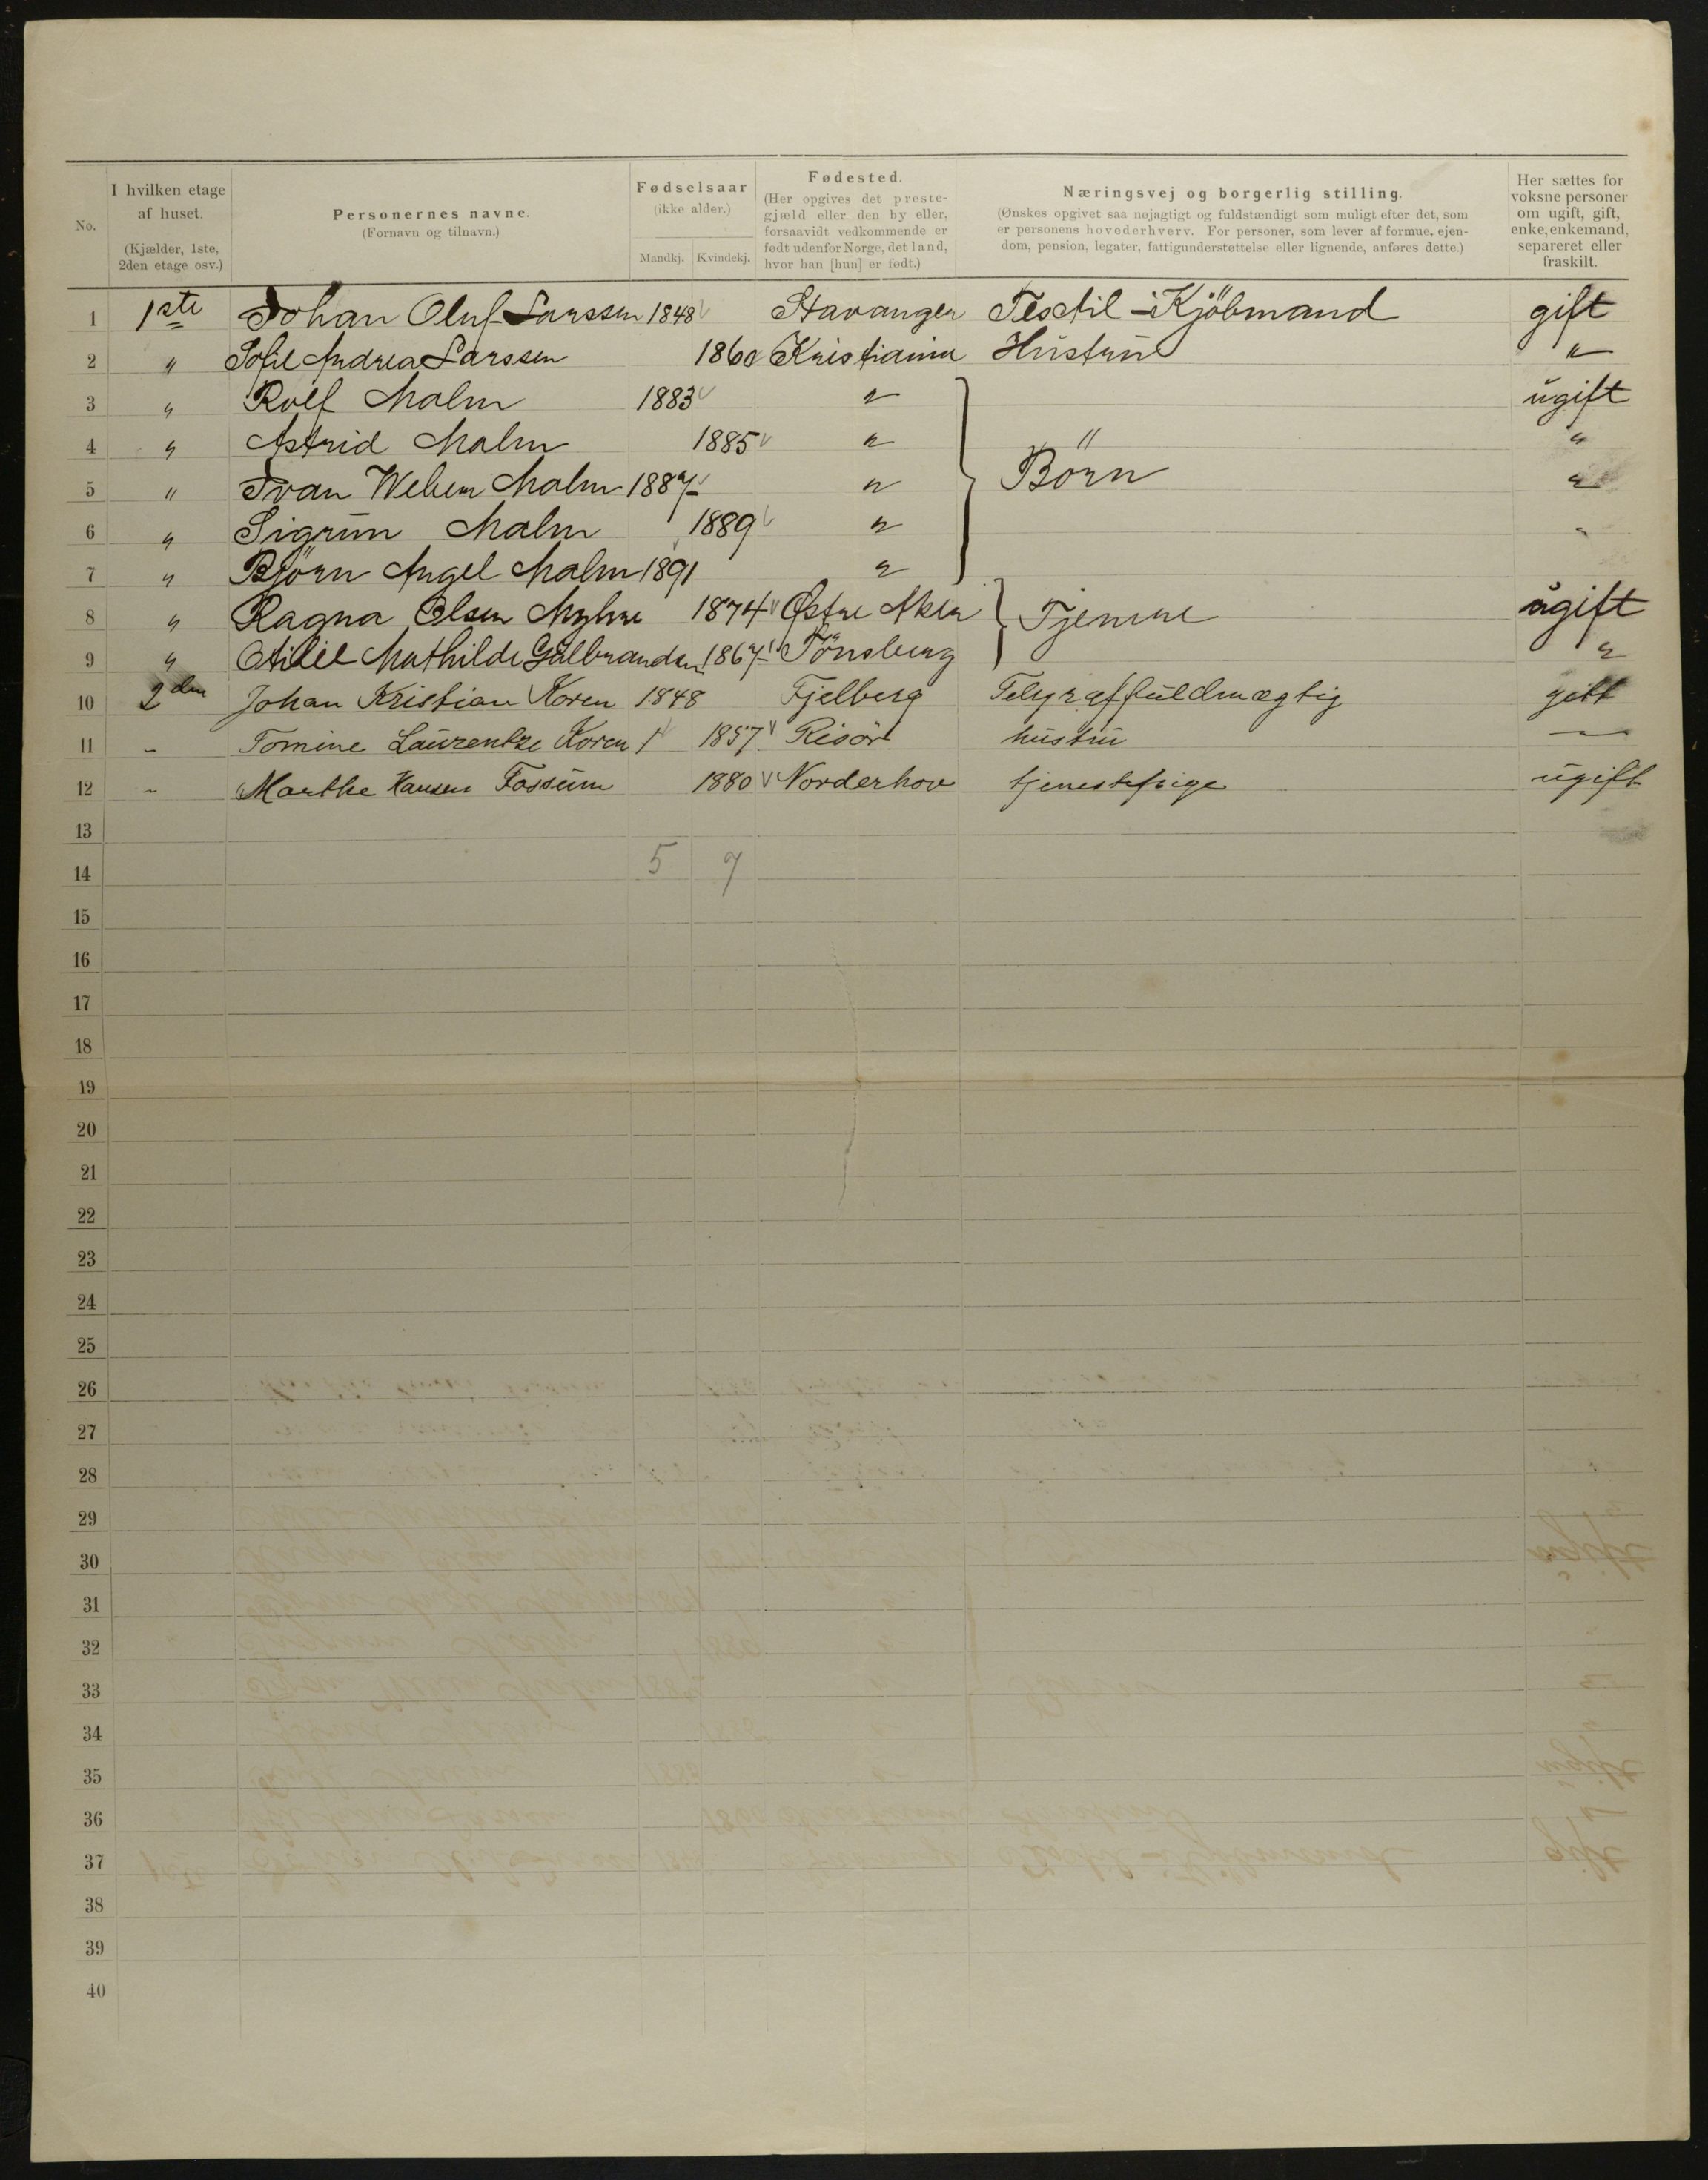 No.
I hvilken etage
af huset.
(Kjælder, 1ste,
2den etage osv.)
Personernes navne.
(Fornavn og tilnavn.)
Fødselsaar
(ikke alder.)
Mandkj. Kvindekj.
Fødested.
(Her opgives det preste-
gjæld eller den by eller,
forsaavidt vedkommende er
født udenfor Norge, det land,
hvor han [hun] er født.)
Næringsvej og borgerlig stilling.
(Ønskes opgivet saa nøjagtigt og fuldstændigt som muligt efter det, som
er personens hovederhverv. For personer, som lever af formue, ejen-
dom, pension, legater, fattigunderstøttelse eller lignende, anføres dette.)
Her sættes for
voksne personer
om ugift, gift,
enke, enkemand,
separeret eller
fraskilt.
1 1ste Johan Oluf Larssen 1848 Stavanger Textil-Kjöbmand gift
2 " Sofie Andrea Larssen 1860 Kristiania Hustru "
3 " Rolf Malm 1883 " ugift
4 " Astrid Malm 1885 " " "
5 " Ivan Weber Malm 1887 " Börn "
6 " Sigrun Malm 1889 " "
7 " Björn Angel Malm 1891 "
8 " Ragna Olsen Myhre 1874 Østre Aker Tjenere ugift
9 " Otilie Mathilde Gulbrandsen 1867 Tönsberg "
10 2den Johan Kristian Koren 1848 Fjelberg Telegraffuldmægtig gift
11 - Tomine Laurentze Koren 1857 Risör hustru -
12 - Marthe Hansen Fossum 1880 Norderhov tjenestepige ugift
13
14 5 7
15
16
17
18
19
20
21
22
23
24
25
26
27
28
29
30
31
32
33
34
35
36
37
38
39
40